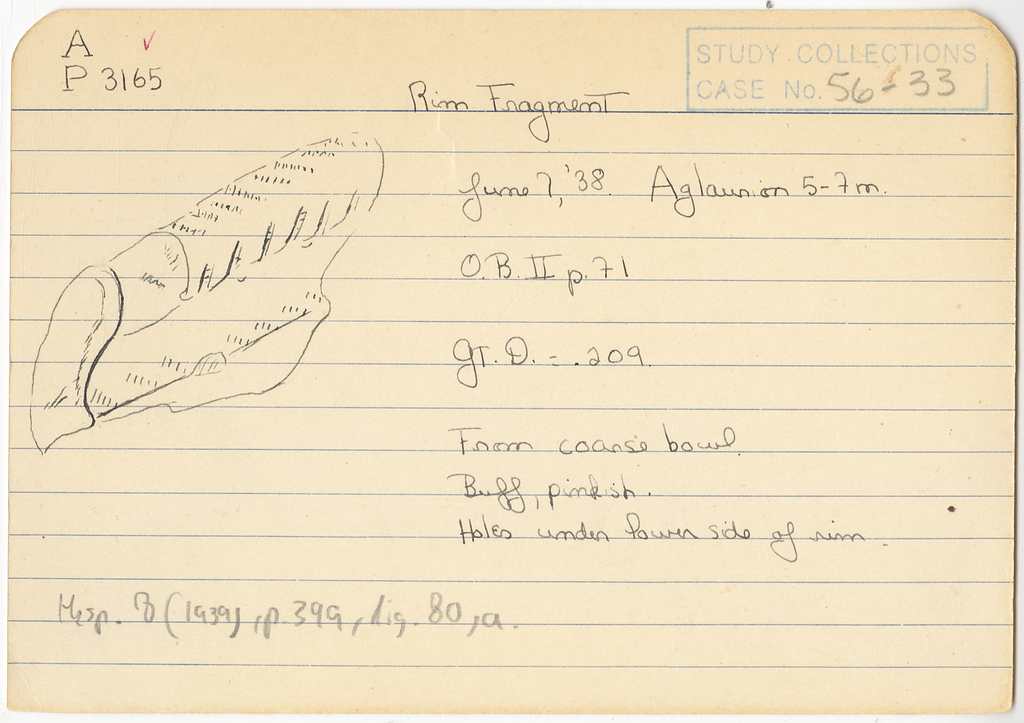 A ✓
P 3165
STUDY COLLECTIONS
CASE No. 56-33
Rim Fragment
June 7, '38. Aglaurion 5-7m.
O.B. II p. 71
GT. D. = .209.
From coarse bowl.
Buff, pinkish.
Holes under lower side of rim.
Hesp. 8 (1939), p. 399, fig. 80, a.